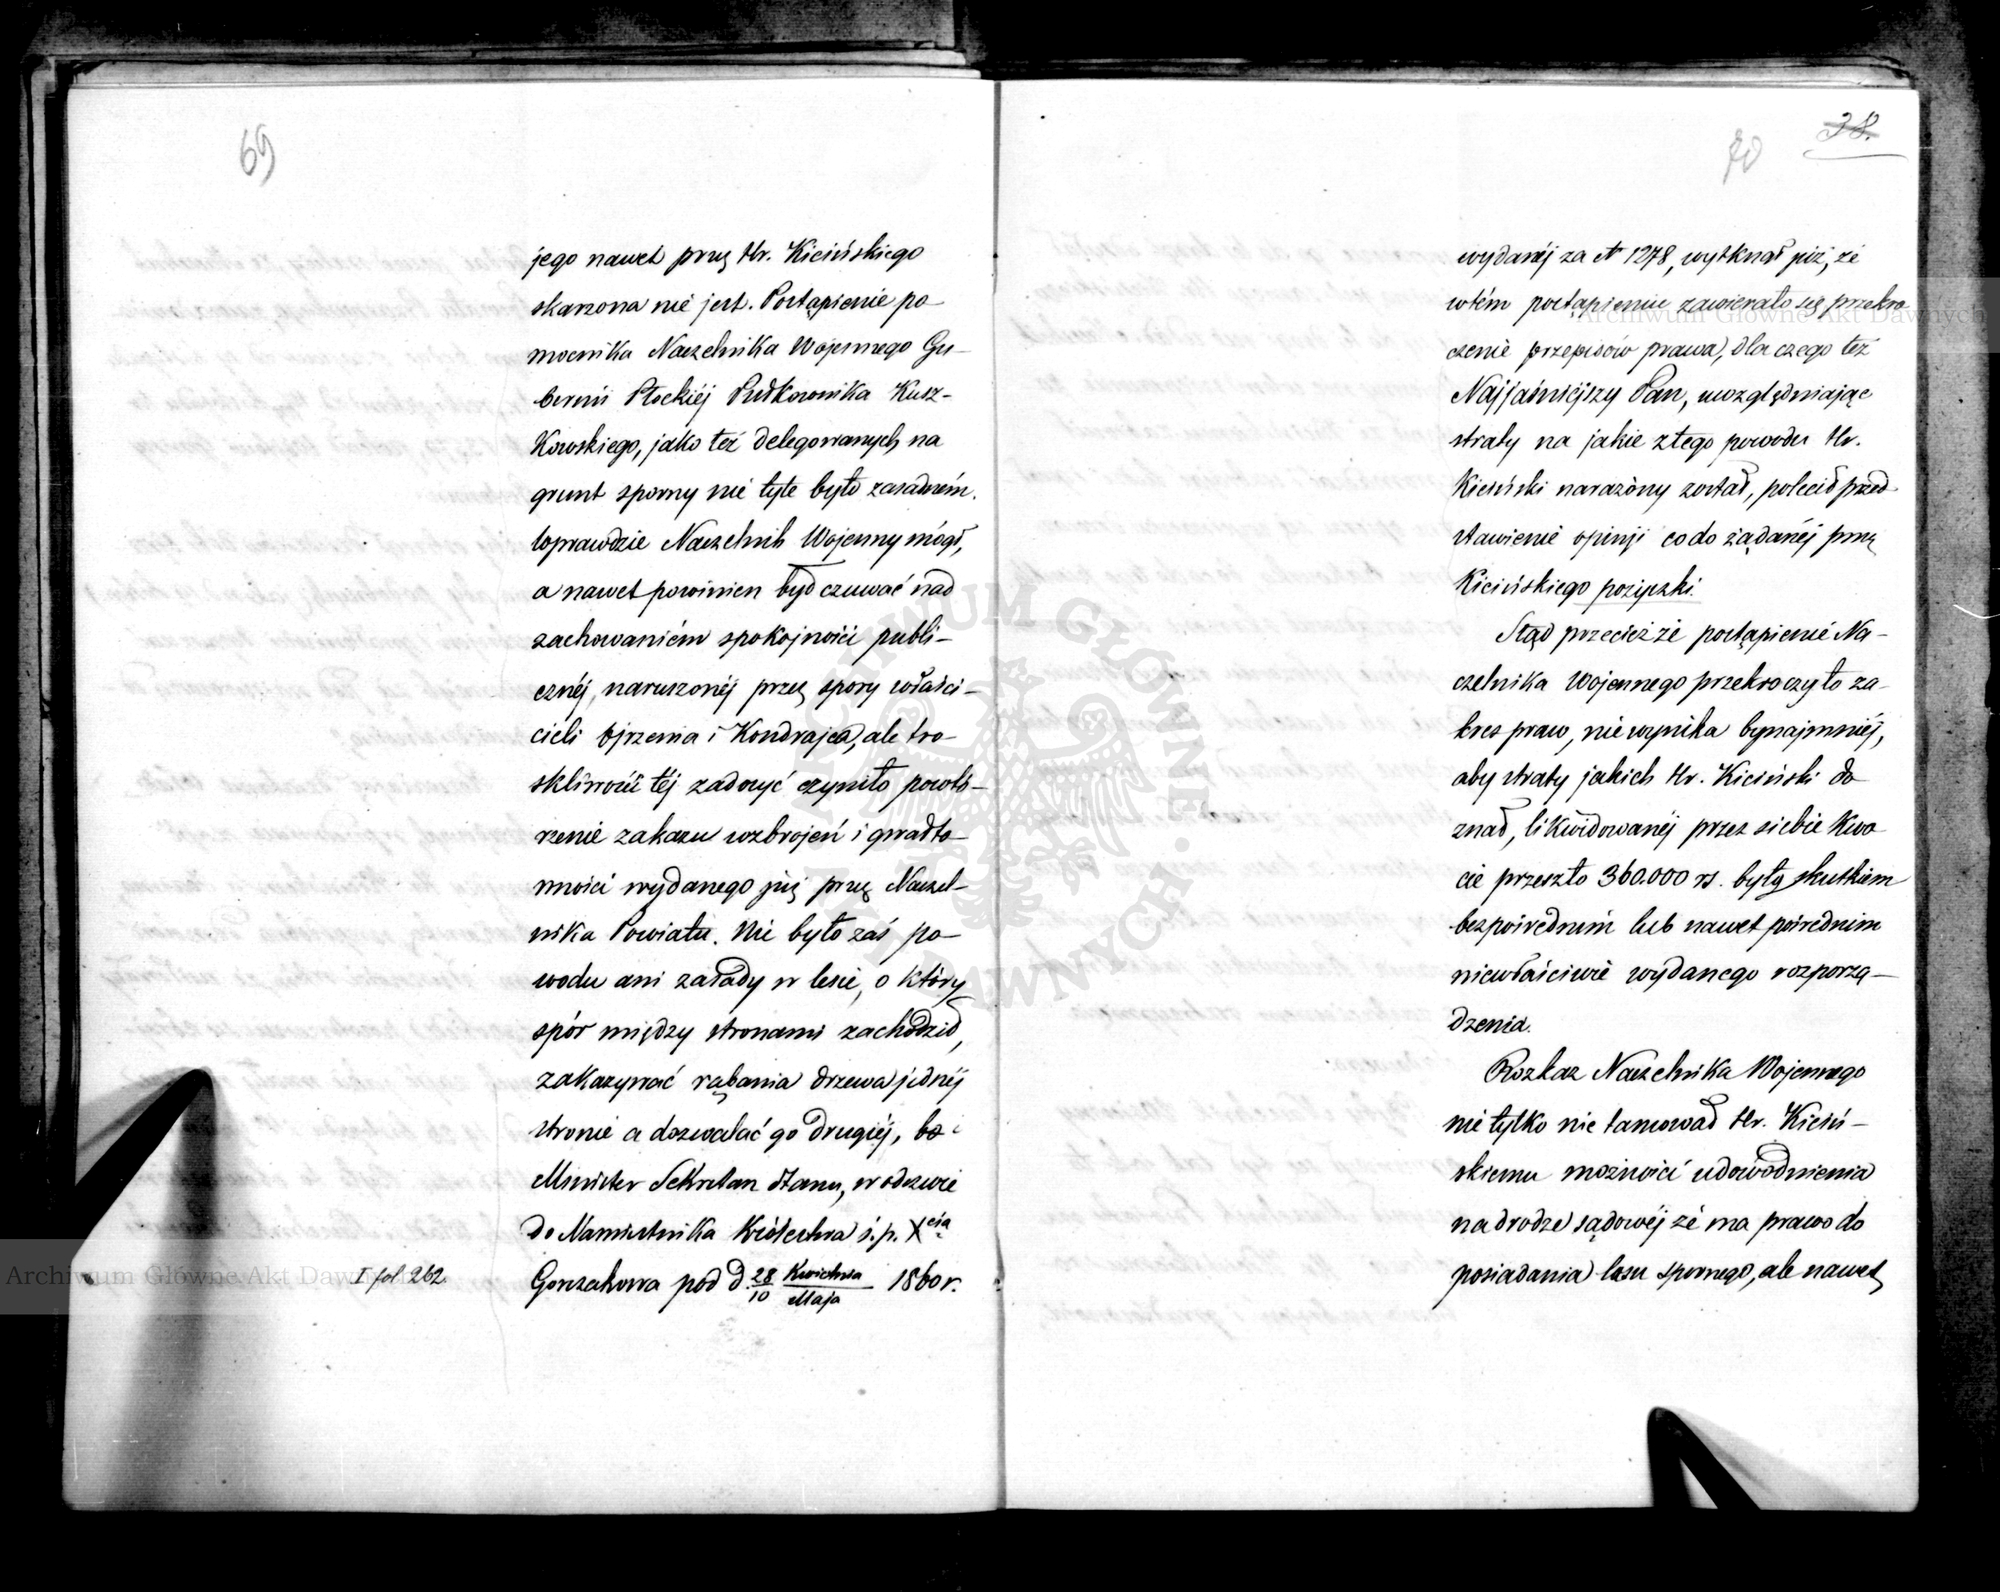 69
jego nawet przez Hr. Kicińskiego
skarzona nie jest. Postąpienie po-
mocnika Naczelnika Wojennego Gu-
bernii Płockiéj Pułkownika Kusz-
Kowskiego, jako też delegowanych na
grunt sporny nie tyle było zasadném.
Wprawdzie Naczelnik Wojenny mógł,
a nawet powinien był czuwać nad
zachowaniém spokojności publi-
cznéj, naruszonéj przez spory właści-
cieli Ojrzenia i Kondrajca, ale tro-
skliwości téj zadosyć czyniło powtó-
rzenie zakazu uzbrojeń i gwałto-
wności wydanego już przez Naczel-
nika Powiatu. Nie było zaś po-
wodu ani zasady w lesie, o który
spór między stronami zachodził,
zakazywać rąbania drzewa jednéj
stronie a dozwalać go drugiéj, bo i
Minister Sekretarz Stanu, w odezwie
do Namiestnika Królestwa ś.p. Xcia
I fol 262.
Gorczakowa pod d. 28/10 Kwietnia/Maja 1860 r.
38.
70
wydanéj za N 1278, wytknął już, że
wtém postąpieniu zawierało się przekro
czenie przepisów prawa, dla czego też
Najjaśniéjszy Pan, uwzględniając
straty na jakie z tego powodu Hr.
Kiciński narażony został, polecił przed
stawienie opinji co do żądanéj przez
Kicińskiego pożyczki.
Stąd przecież że postąpienie Na-
czelnika Wojennego przekroczyło za-
kres praw, nie wynika bynajmniéj,
aby straty jakich Hr. Kiciński do
znał, likwidowanéj przez siebie kwo
cie przeszło 360.000 rs. były skutkiem
bezpośrednim lub nawet pośrednim
niewłaściwie wydanego rozporzą-
dzenia.
Rozkaz Naczelnika Wojennego
nie tylko nie tamował Hr. Kiciń-
skiemu możności udowodnienia
na drodze sądowéj że ma prawo do
posiadania lasu spornego, ale nawet
Archiwum Główne Akt Dawnych
Archiwum Główne Akt Dawnych
ARCHIWUM GŁÓWNE · AKT DAWNYCH ·